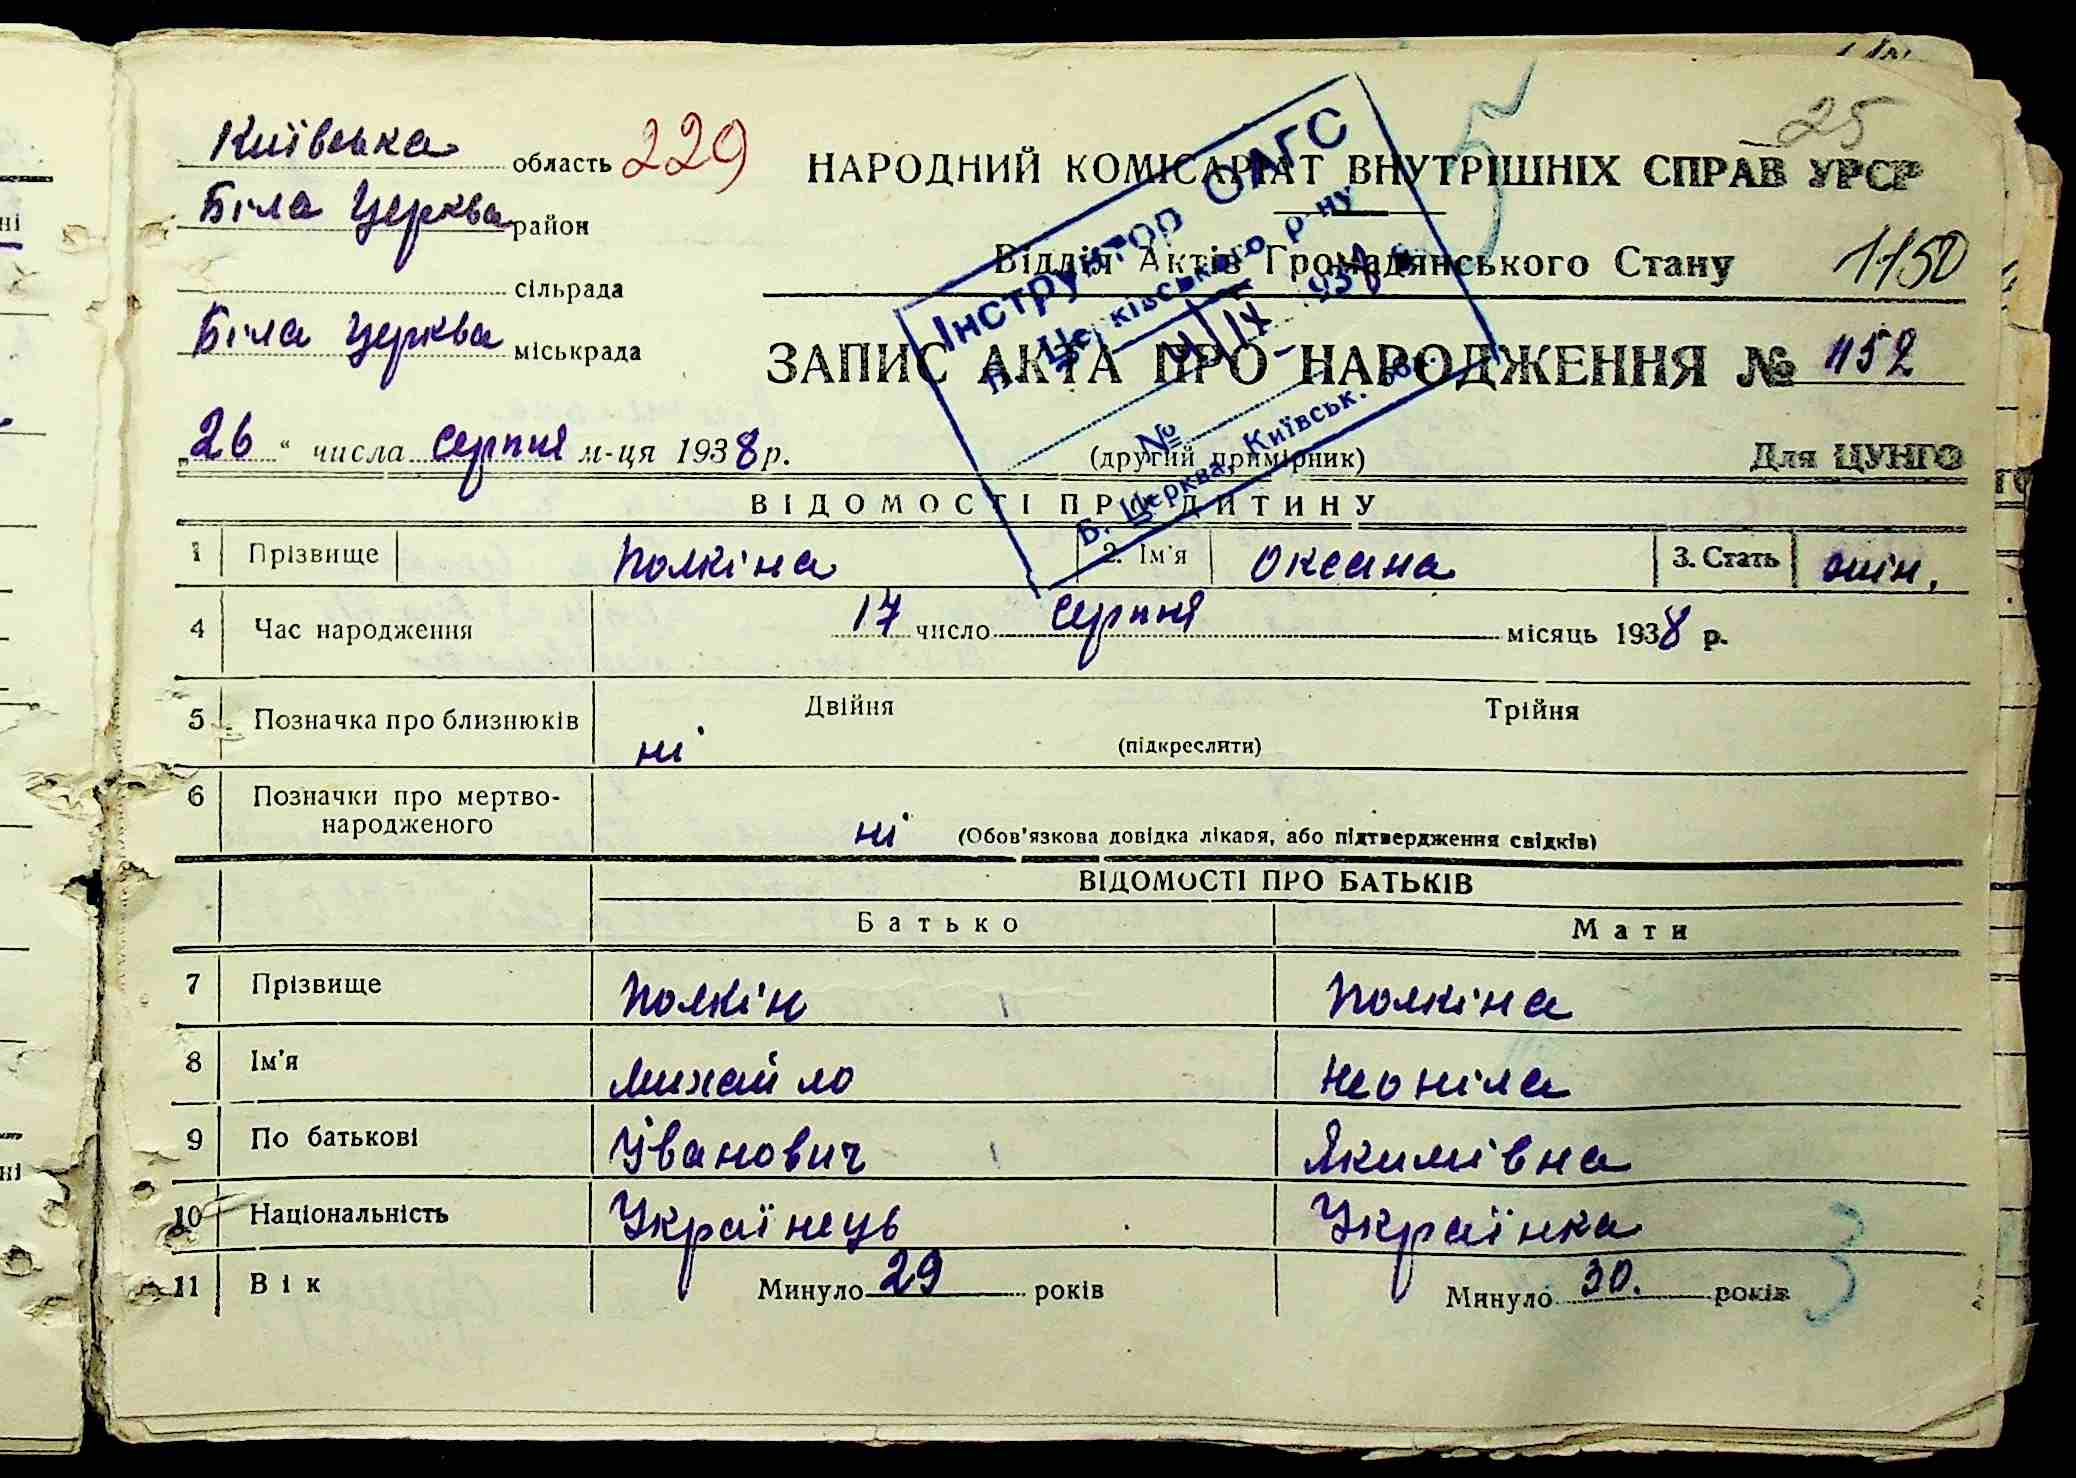 Київська область 229
Біла Церква район
сільрада
Біла Церква міськрада
25
НАРОДНИЙ КОМІСАРІАТ ВНУТРІШНІХ СПРАВ УРСР
5
Відділ Актів Громадянського Стану 1150
ЗАПИС АКТА ПРО НАРОДЖЕННЯ № 1152
„26“ числа серпня м-ця 1938 р.
(другий примірник)
Для ЦУНГО
Інструктор ОАГС
Б. Церківського р-ну
4/IX 1938 р.
№
Б. Церква, Київськ. об.
ВІДОМОСТІ ПРО ДИТИНУ
1 Прізвище Полкіна 2. Ім'я Оксана 3. Стать жін.
4 Час народження 17 число серпня місяць 1938 р.
5 Позначка про близнюків ні Двійня Трійня
(підкреслити)
6 Позначки про мертво-
народженого ні (Обов'язкова довідка лікаря, або підтвердження свідків)
ВІДОМОСТІ ПРО БАТЬКІВ
Батько Мати
7 Прізвище Полкін Полкіна
8 Ім'я Михайло Неоніла
9 По батькові Іванович Якимівна
10 Національність Українець Українка
11 Вік Минуло 29 років Минуло 30. років
3